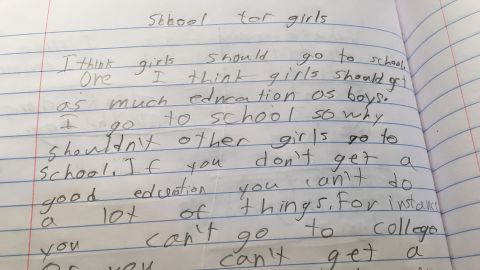 School for girls
I think girls should go to school.
One I think girls should get
as much education as boys.
I go to school so why
shouldn't other girls go to
school. If you don't get a
good education you can't do
a lot of things. For instance
you can't go to college
Or you can't get a